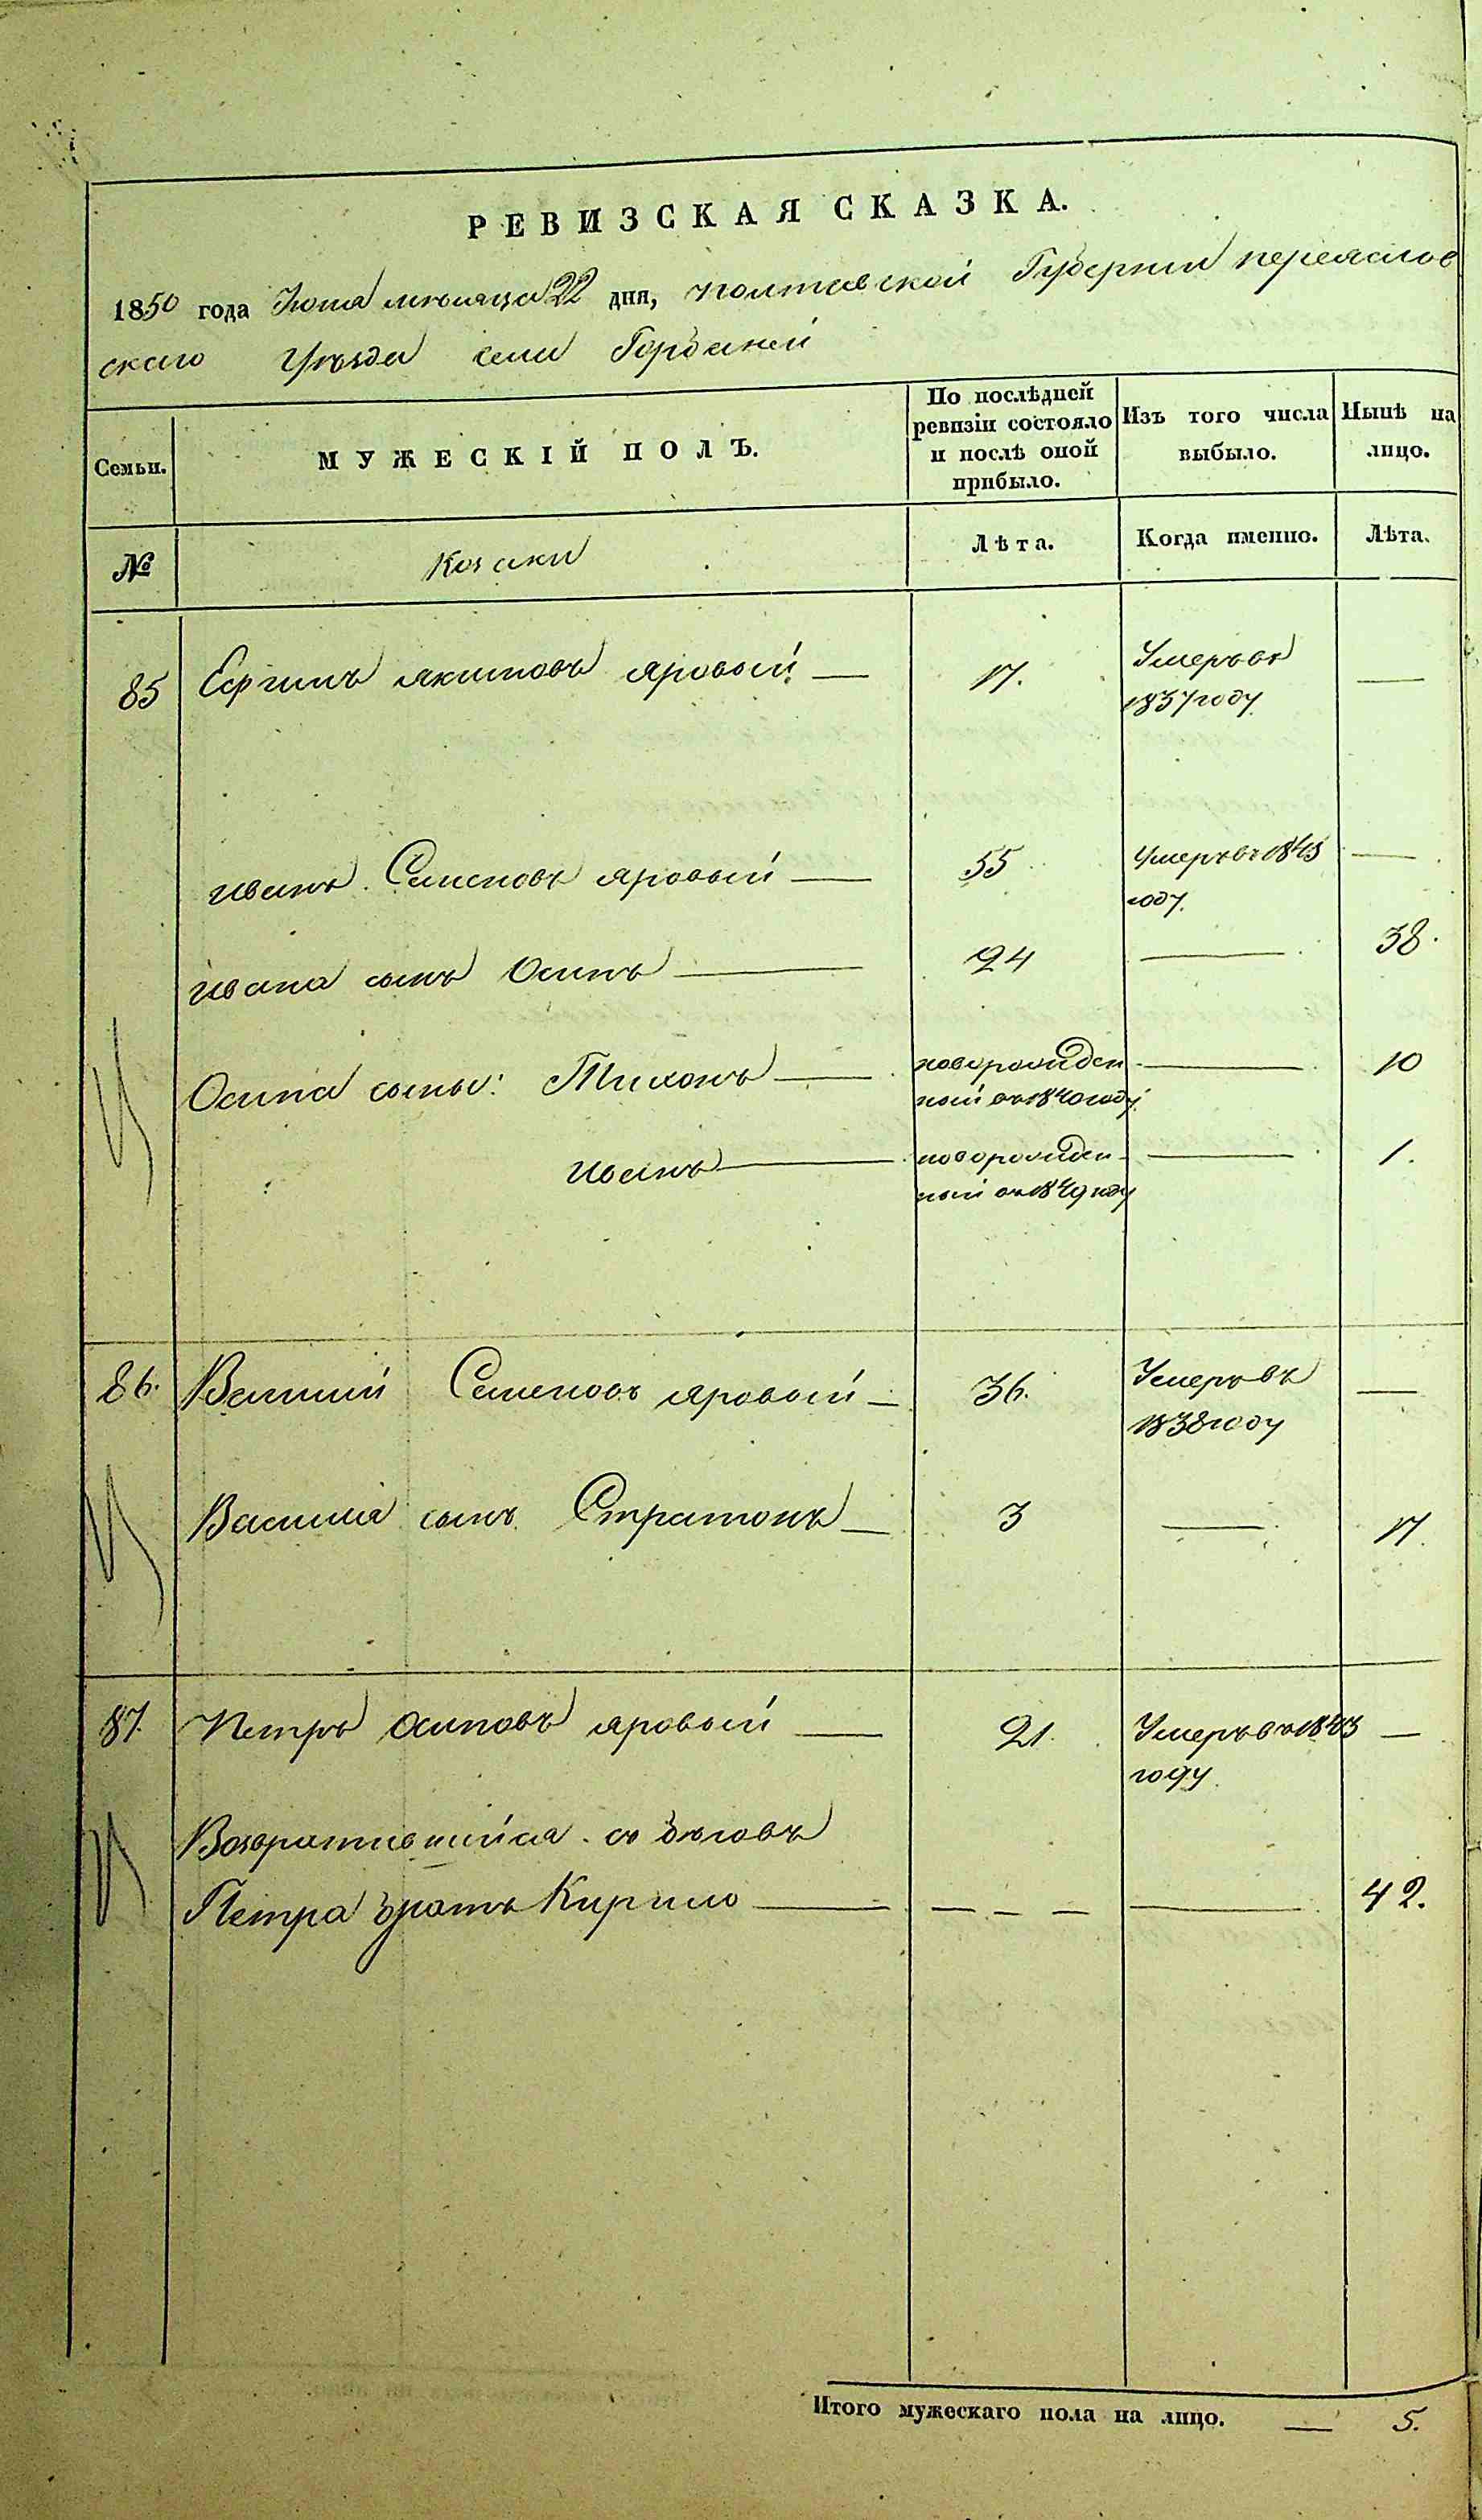 РЕВИЗСКАЯ СКАЗКА.
1850 года Июня месяца 22 дня, Полтавской Губернии переяслов
скаго Уѣзда села Горбаней
Семьи.
МУЖЕСКІЙ ПОЛЪ.
По послѣдней ревизіи состояло и послѣ оной прибыло.
Изъ того числа выбыло.
Нынѣ на лицо.
№
Козаки
Лѣта.
Когда именно.
Лѣта.
85 Ефимъ якимовъ яровый — 17. Умеръ въ 1837 году —
иванъ Семеновъ яровый — 55 Умеръ въ 1845 году. —
ивана сынъ Осипъ — 24 — 38.
Осипа сыны: Тихонъ — новорожденный въ 1840 году — 10
иванъ — новорожденный въ 1849 году — 1.
86. Василий Семеновъ яровый — 36. Умеръ въ 1838 году —
Василия сынъ Стратонъ — 3 — 17.
87. Петръ осиповъ яровый — 21. Умеръ въ 1843 году. —
Возвратившийся съ бѣговъ
Петра братъ Кирило — — — — — 42.
Итого мужескаго пола на лицо. — 5.